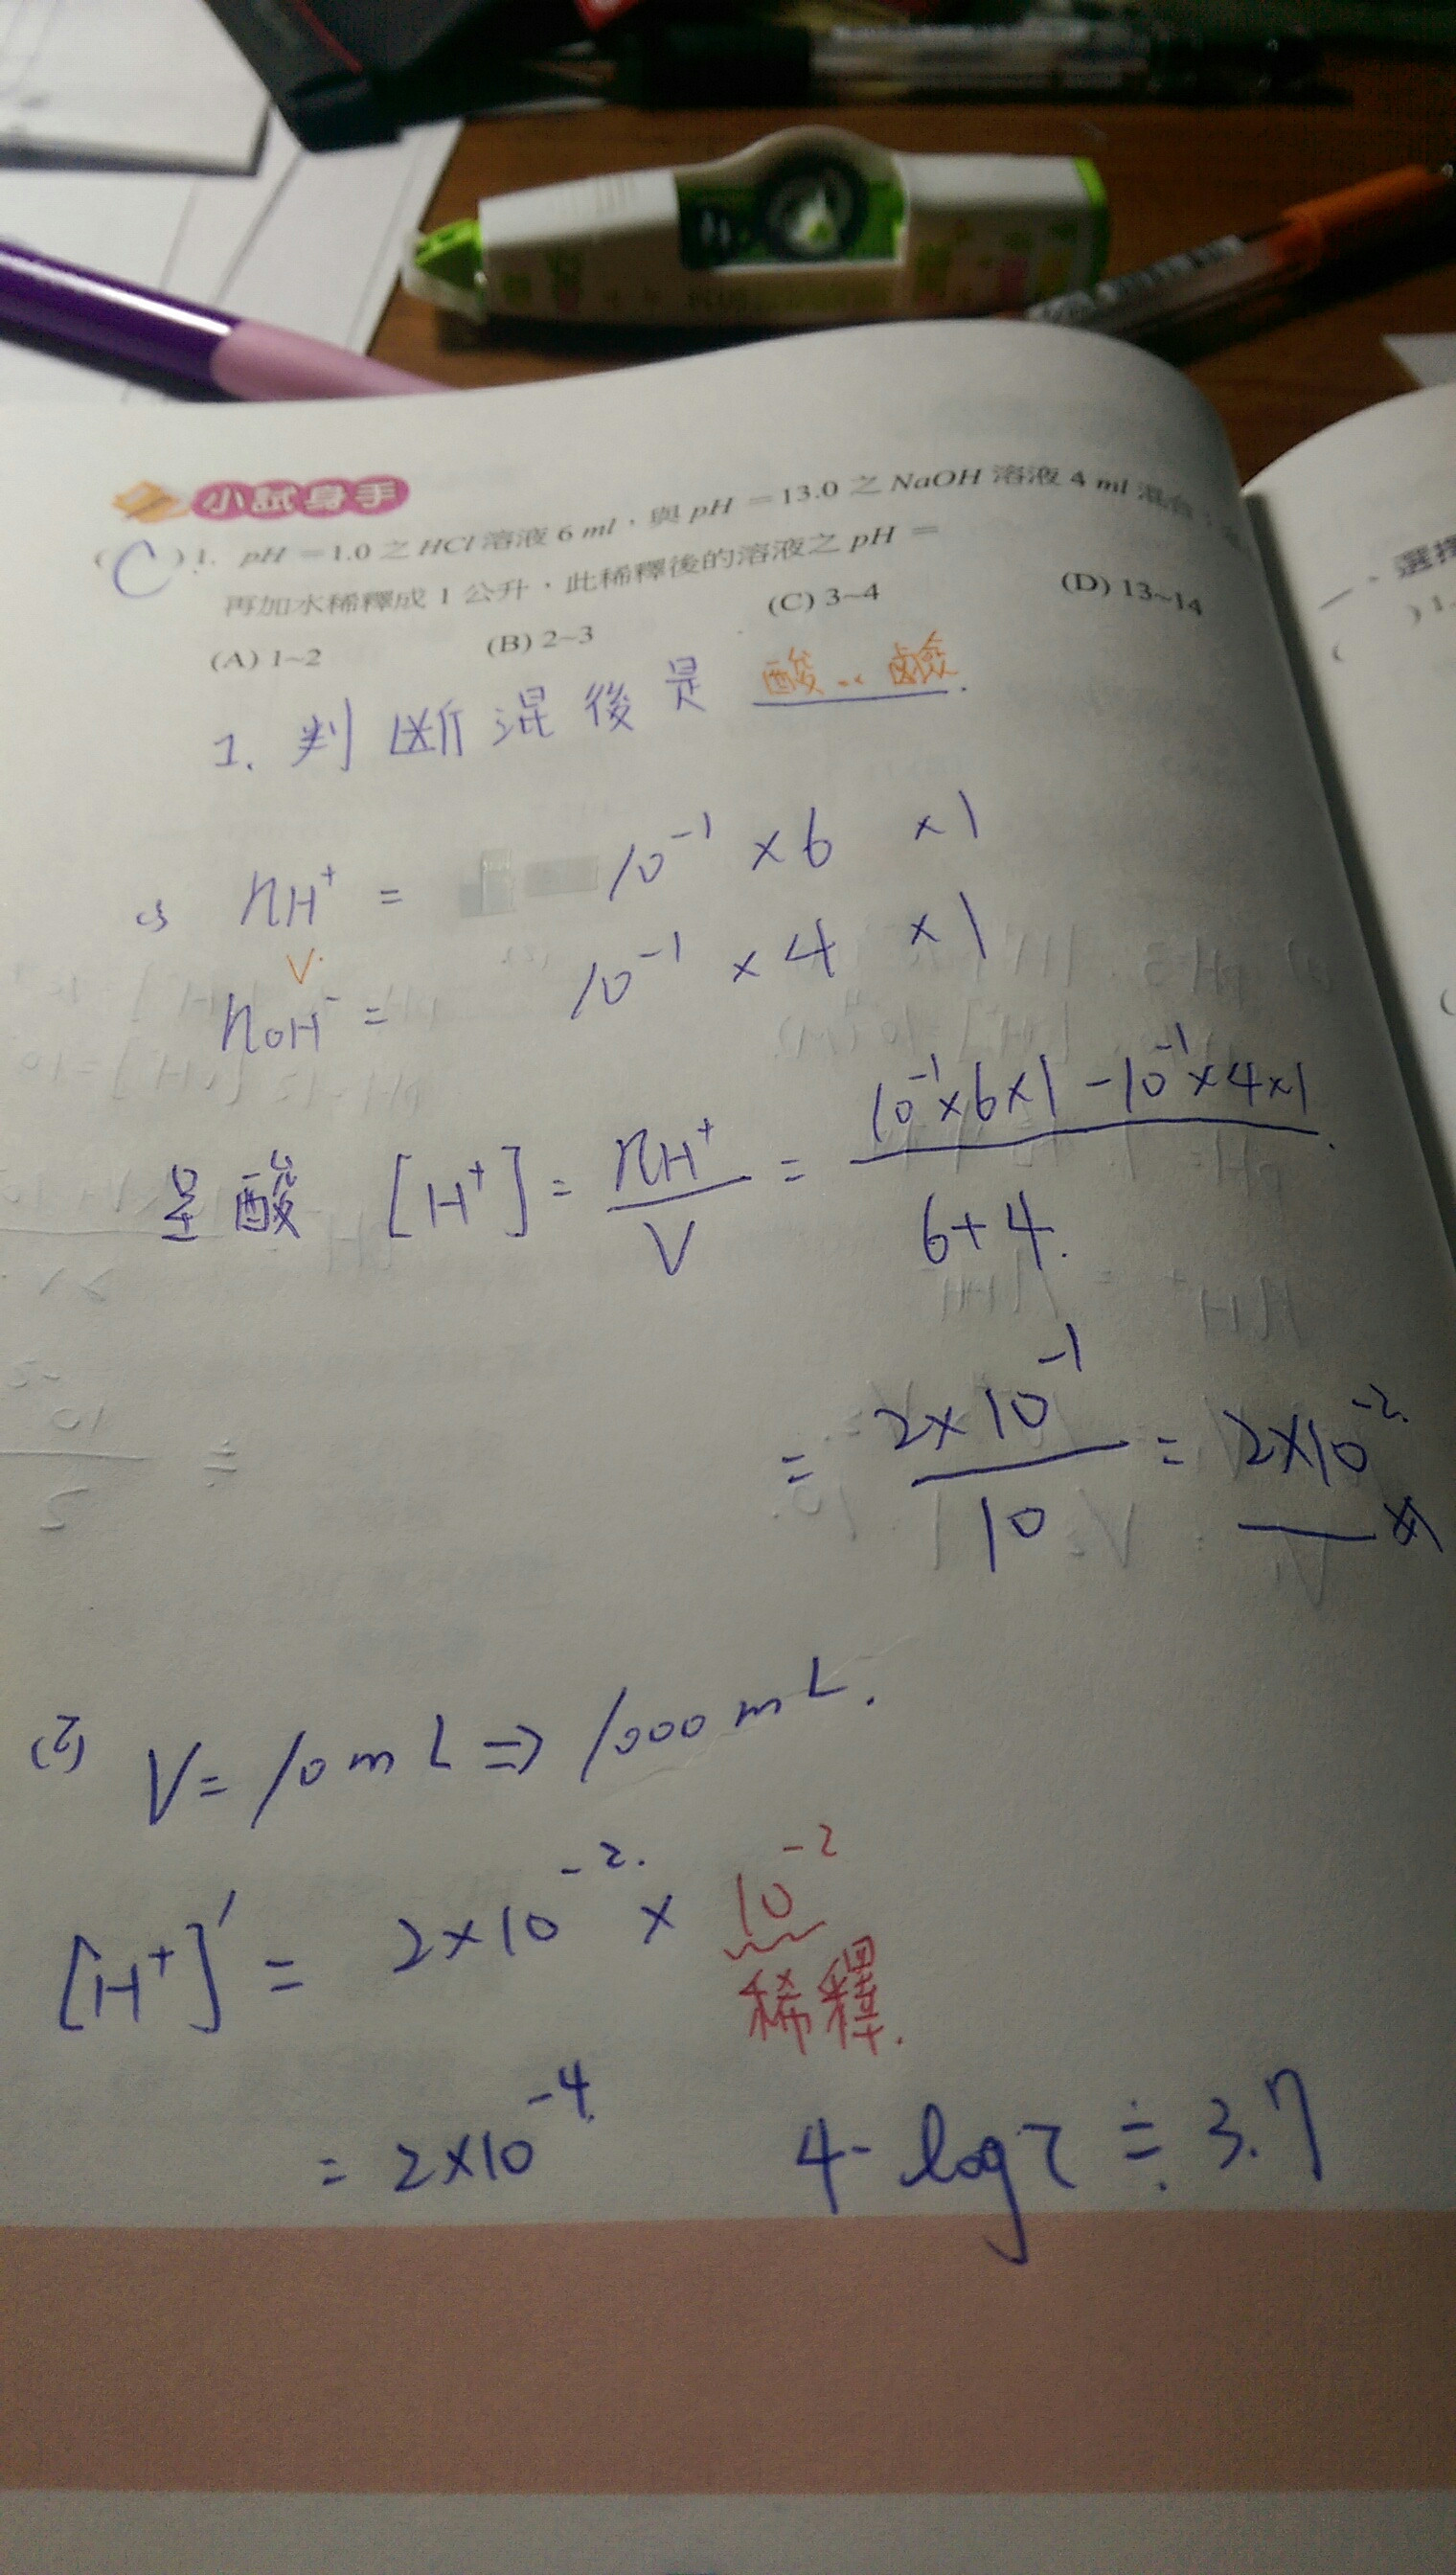 小試身手
(C)1. pH=1.0 之 HCl 溶液 6 ml,與 pH=13.0 之 NaOH 溶液 4 ml 混合,
再加水稀釋成 1 公升,此稀釋後的溶液之 pH=
(A) 1~2 (B) 2~3 (C) 3~4 (D) 13~14
1. 判斷混後是 酸.. 鹼.
nH⁺ = 10⁻¹ × 6 × 1
V
nOH⁻ = 10⁻¹ × 4 × 1
是酸 [H⁺] = nH⁺/V = (10⁻¹×6×1 - 10⁻¹×4×1)/(6+4.)
= 2×10⁻¹/10 = 2×10⁻²
(2) V = 10 mL ⇒ 1000 mL.
[H⁺]' = 2×10⁻² × 10⁻²
稀釋.
= 2×10⁻⁴ 4-log2 ≒ 3.7
選擇
) 1.